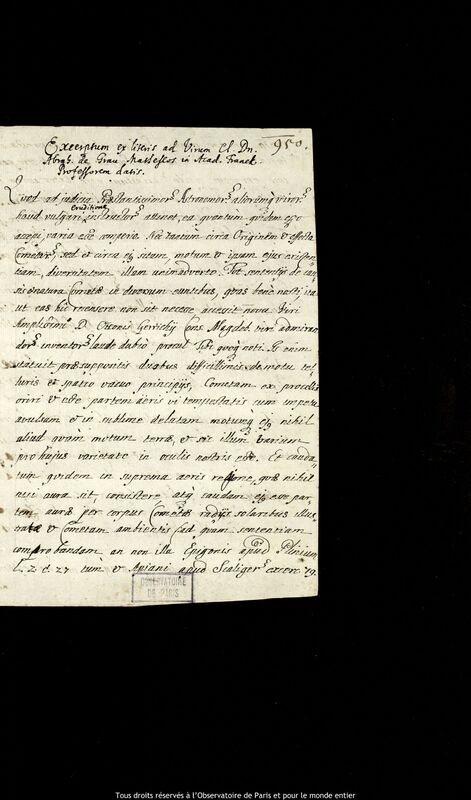 Excerptum ex literis ad Virum Cl. Dn. 950.
Abrah. de Grau Matheseos in Acad. Franek.
Professorem datis.
Quod ad judicia Præstantissimor. Astronomor. aliorumq viror.
eruditione
haud vulgari instructor. attinet, ea quantum quidem ego
accepi, varia esse comperio. Nec tantum circa Originem et effecta
Cometar., sed et circa ej. situm, motum et ipsam ejus existen-
tiam, diversitatem illam animadverto. Tot sententijs de cau-
sis et natura Cometæ in diversum euntibus, quas bene nosti ita
ut eas hic recensere non sit necesse, accessit nova Viri
Amplissimi D. Ottonis Gerickij Cons. Magdeb. viri admiran
dor. inventor. laude dubio procul Tibi quoq noti. Is enim
statuit præsuppositis duabus difficillimis de motu tel-
luris et spatio vacuo principijs, Cometam ex procellis
oriri et esse partem aeris vi tempestatis cum impetu
avulsam et in sublime delatam motumq ej. nihil
aliud quam motum terræ, et sic illum varium
pro hujus varietate in oculis nostris esse. Et cauda-
tum quidem in suprema aeris regione, quæ nihil
nisi aura sit, consistere atq caudam ej. esse par-
tem auræ per corpus Cometæ radijs solaribus illus-
tratæ et Cometam ambientis (ad quam sententiam
comprobandam, an non illa Epigenis apud Plinium
l. 2 c. 27 tum et Apiani apud Scaliger. exerc. 79.
OBSERVATOIRE
DE PARIS
Tous droits réservés à l'Observatoire de Paris et pour le monde entier